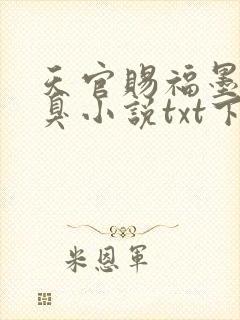 天官赐福墨
臭小说txt下
米恩军